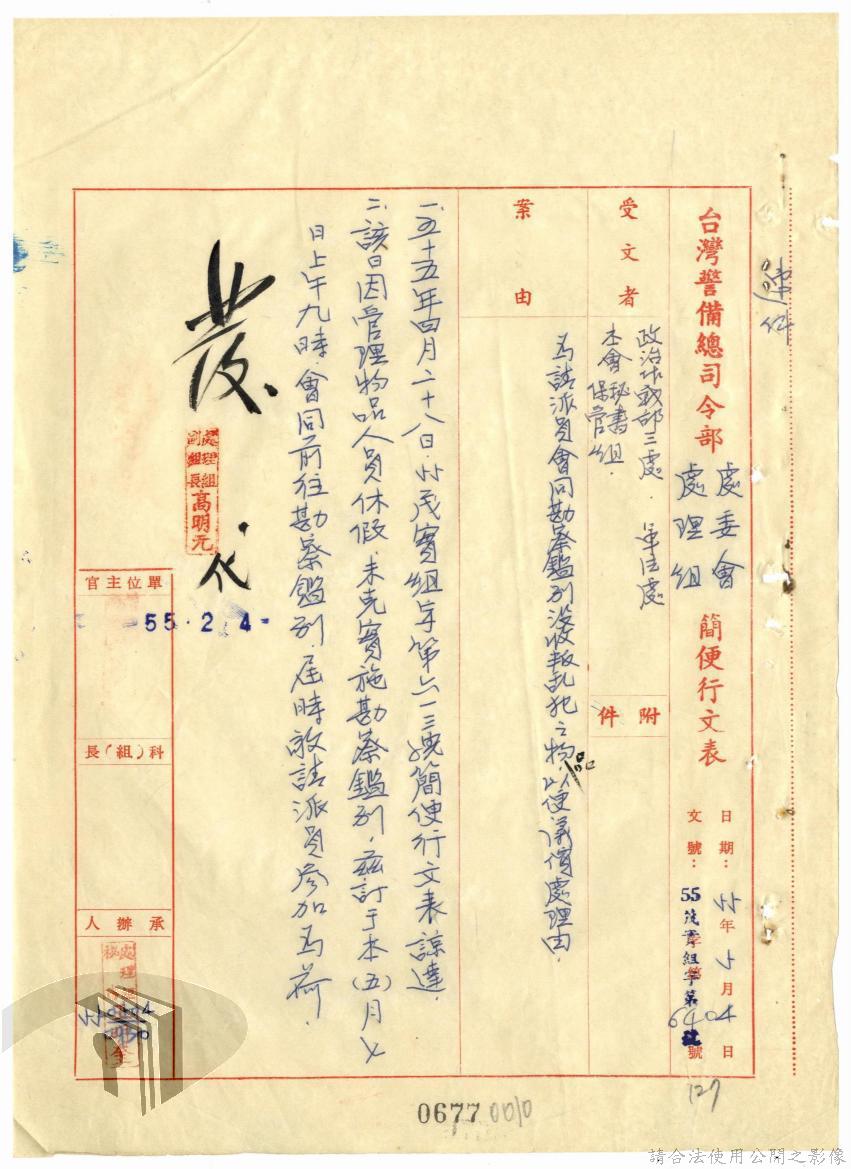 速件
台灣警備總司令部 處委會處理組 簡便行文表
日期:55年5月04日
文號:55茂實組字第6404號
受文者
政治作戰部三處.軍法處
本會秘書組.保管組.
附件
案由
為請派員會同勘察鑑別沒收叛亂犯之物品以便議價處理由.
一.五十五年四月二十八日.55茂實組字第六一三號簡便行文表諒達.
二.該日因管理物品人員休假.未克實施勘察鑑別,茲訂于本(五)月七
日上午九時.會同前往勘察鑑別.屆時敬請派員參加為荷.
發.
代
處理組
副組長 高明元
單位主官
55.2.4-
科(組)長
承辦人
127
0677 0010
請合法使用公開之影像